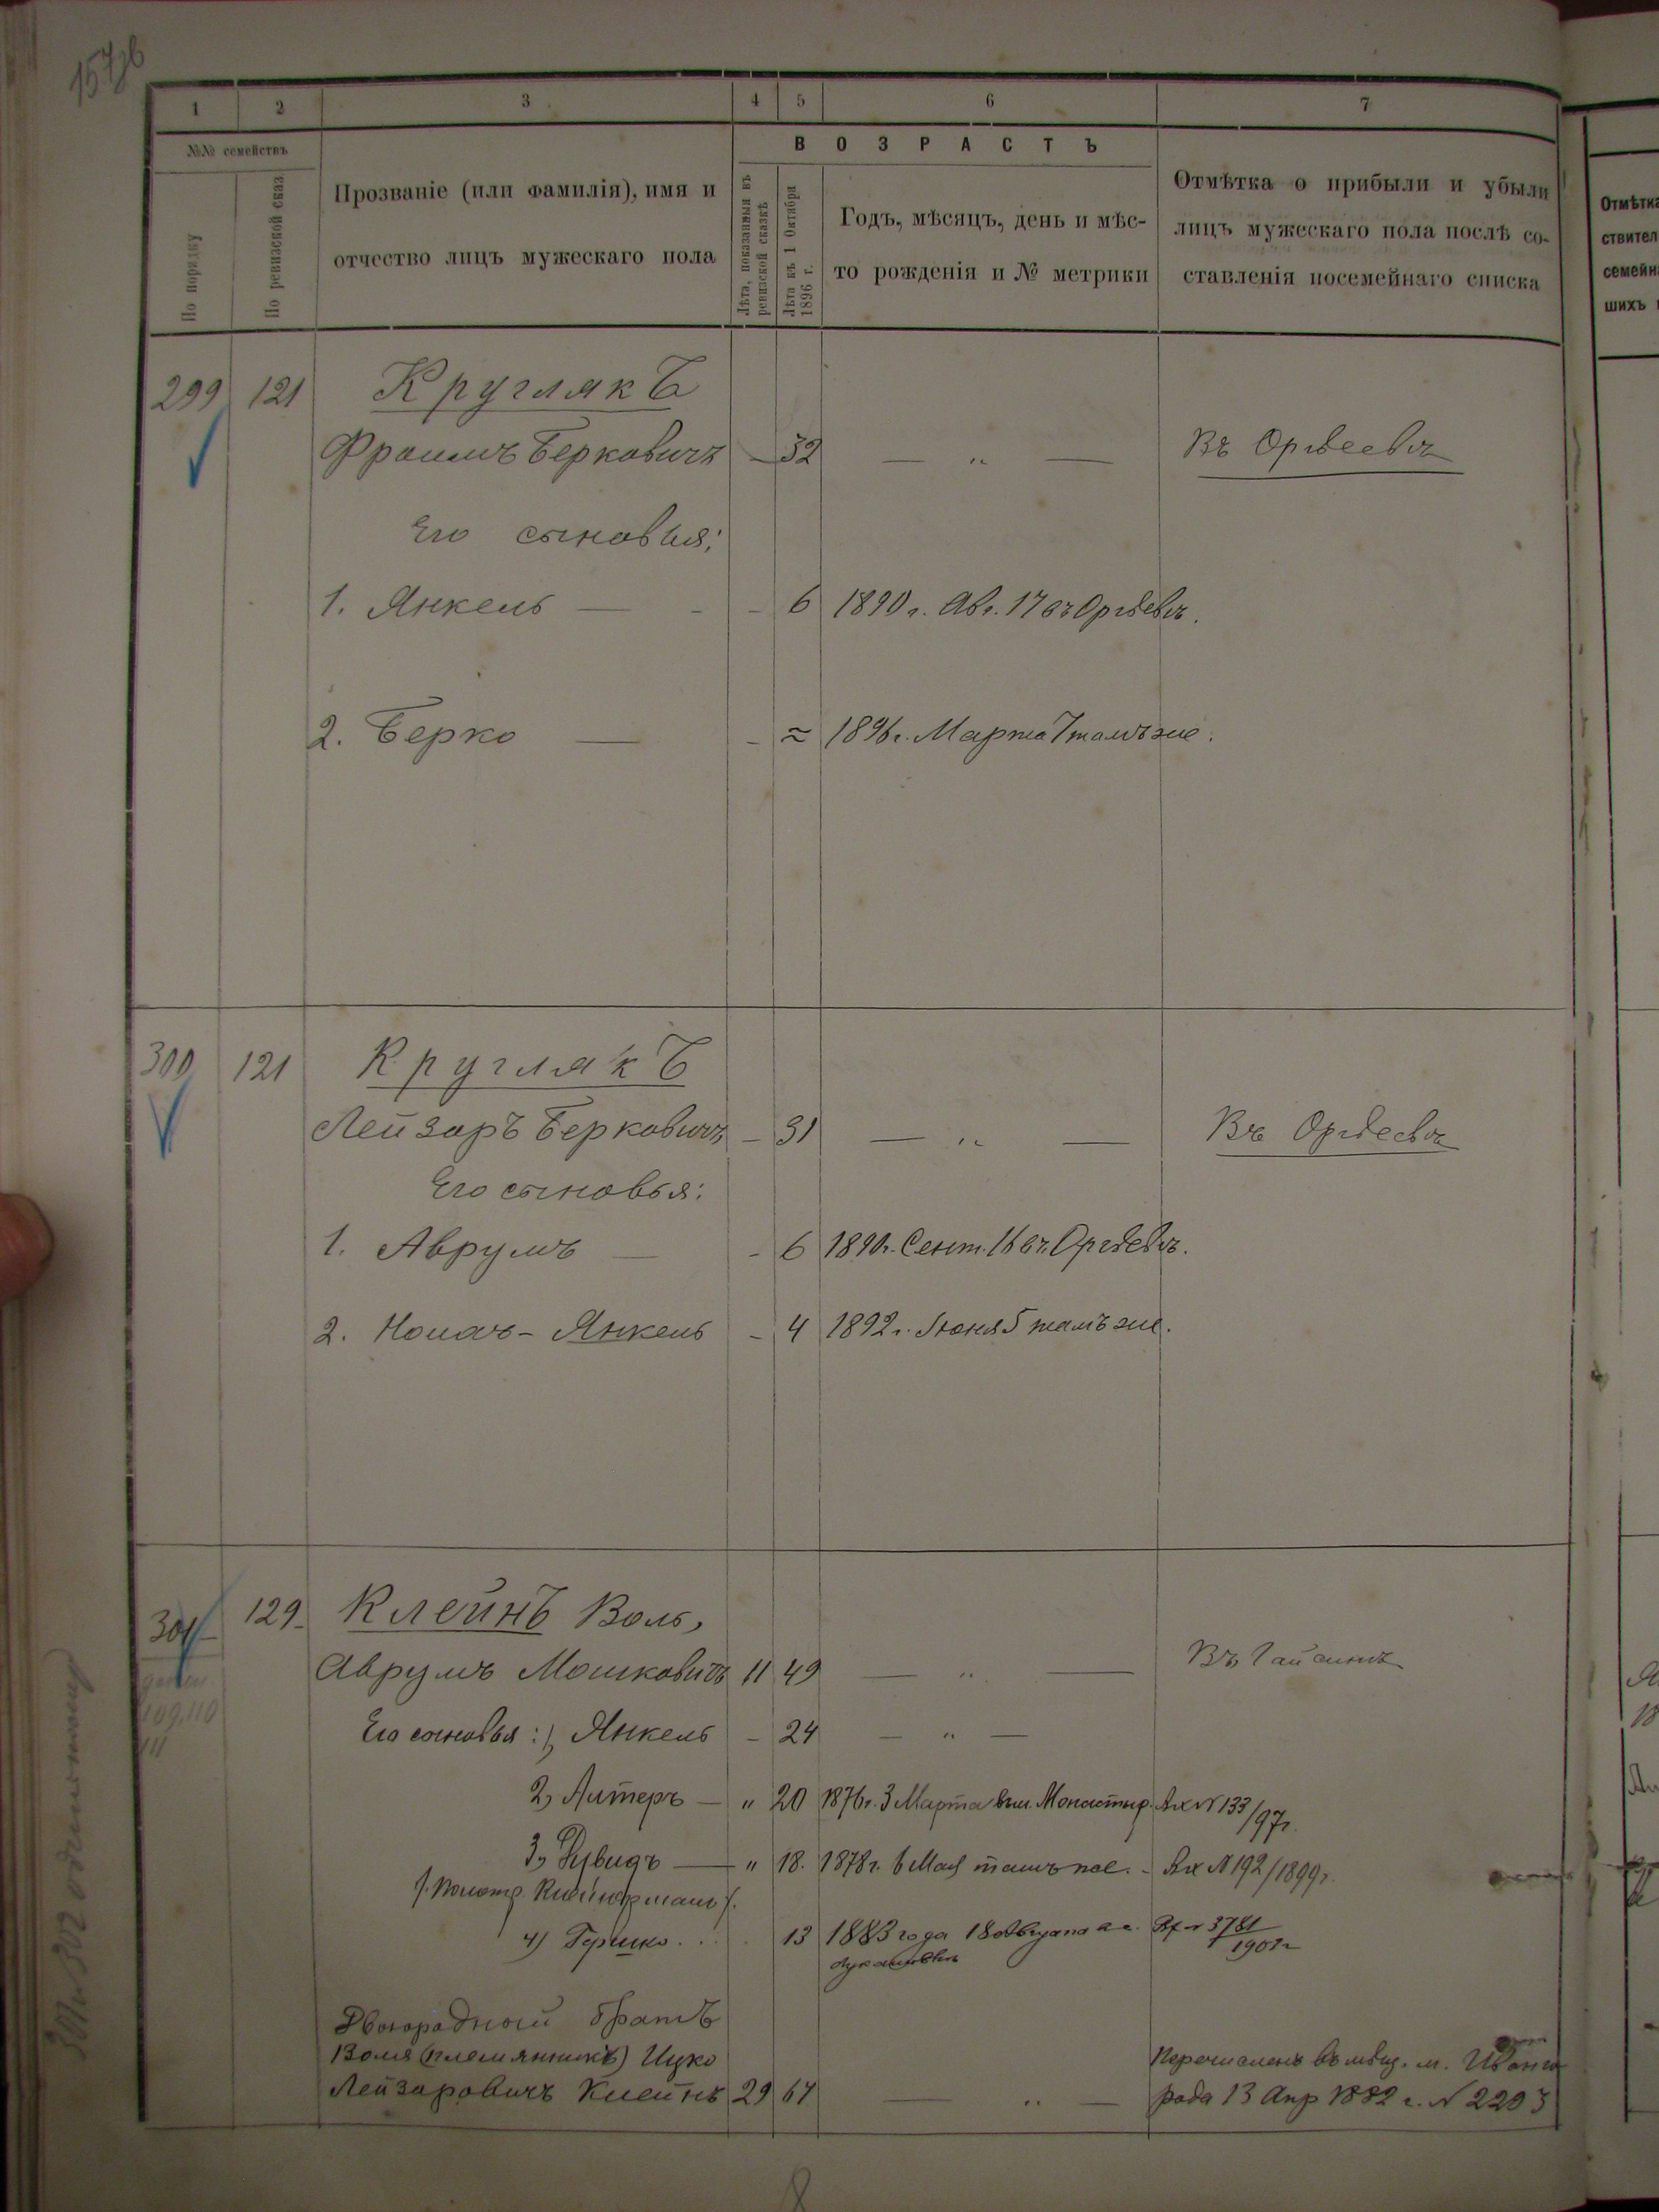 1 2 3 4 5 6 7
№№ семействъ
По порядку
По ревизской сказ
Прозваніе (или фамилія), имя и
отчество лицъ мужескаго пола
ВОЗРАСТЪ
Лѣта, показанныя въ
ревизской сказкѣ
Лѣта къ 1 Октября
1896 г.
Годъ, мѣсяцъ, день и мѣс-
то рожденія и № метрики
Отмѣтка о прибыли и убыли
лицъ мужескаго пола послѣ со-
ставленія посемейнаго списка
299 121 Круглякъ
Фроимъ Берковичъ — 32 — „ — Въ Оргѣевѣ
Его сыновья:
1. Янкель — - - 6 1890 г. Авг. 17 въ Оргѣевѣ.
2. Берко — - 1896 г. Марта 7 тамъ же.
300 121 Круглякъ
Лейзоръ Берковичъ — 31 — „ — Въ Оргѣевѣ
Его сыновья:
1. Аврумъ — - 6 1890 г. Сент. 16 въ Оргѣевѣ.
2. Янкель - 4 1892 г. Іюня 5 тамъ же.
301 129 Клейнъ Воль,
Аврумъ Мошковичъ 11 49 — „ — Въ Гайсинѣ
109, 110
111
Его сыновья: 1, Янкель - 24 — „ —
2, Алтеръ — „ 20 1876 г. 3 Марта въ м. Монастыр. Вх № 133/97 г.
3, — „ 18. 1878 г. 6 Мая тамъ же. - Вх № 192/1899 г.
4) Гершко . . . 13 1883 года 18 Августа 3781
1901 г
Двоюродной братъ
Воля (племянникъ) Ицко
Лейзоровичъ Клейнъ 29 67 — „ —
Перечисленъ въ мѣщ. м. Ивонго
рода 13 Апр 1882 г. № 2203
301 и 302
Отмѣтк
ствител
семейн
шихъ